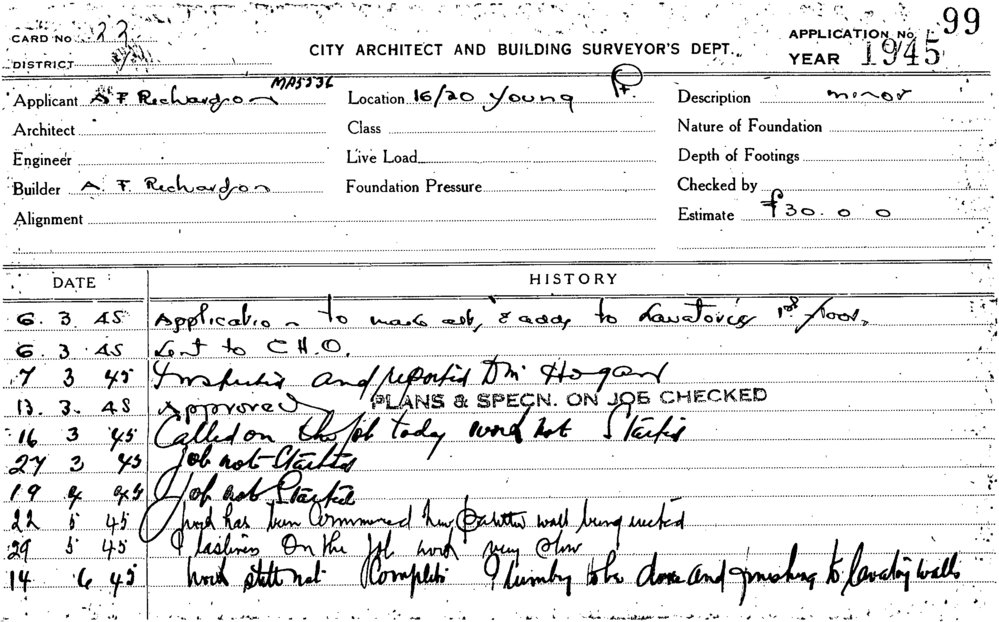 CARD No 22
DISTRICT
CITY ARCHITECT AND BUILDING SURVEYOR'S DEPT.
APPLICATION No. 99
YEAR 1945
MA5536
Applicant A F Richardson
Location 16/20 Young
Description minor
Architect
Class
Nature of Foundation
Engineer
Live Load
Depth of Footings
Builder A. F. Richardson
Foundation Pressure
Checked by
Alignment
Estimate £30.0 0
DATE HISTORY
6. 3. 45 Application to make alts, & adds to Lavatories 1st floor.
6. 3. 45 Sent to C H.O.
7 3 45 Inspected and reported Mr Hogan
13. 3. 45 Approved PLANS & SPECN. ON JOB CHECKED
16 3 45 Called on the job today work not Started
27 3 45 Job not Started
19 4 45 Job not Started
22 5 45 work has been Commenced New Partition wall being erected
29 5 45 Plasterers on the Job work very slow
14 6 45 work still not Complete Plumbing to be done and finishing to lavatory walls